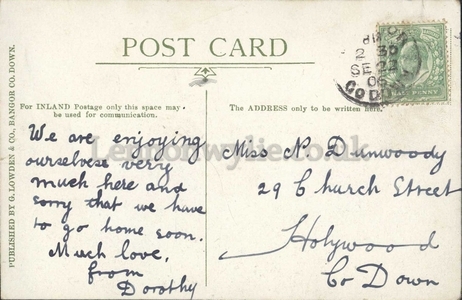 POST CARD
For INLAND Postage only this space may
be used for communication.
The ADDRESS only to be written here.
We are enjoying
ourselves very
much here and
sorry that we have
to go home soon.
Much love,
from
Dorothy
Miss N. Dunwoody
29 Church Street
Holywood
Co Down
PUBLISHED BY G. LOWDEN & CO., BANGOR CO. DOWN.
2 30
SE 23
06
CO DOWN
PENNY